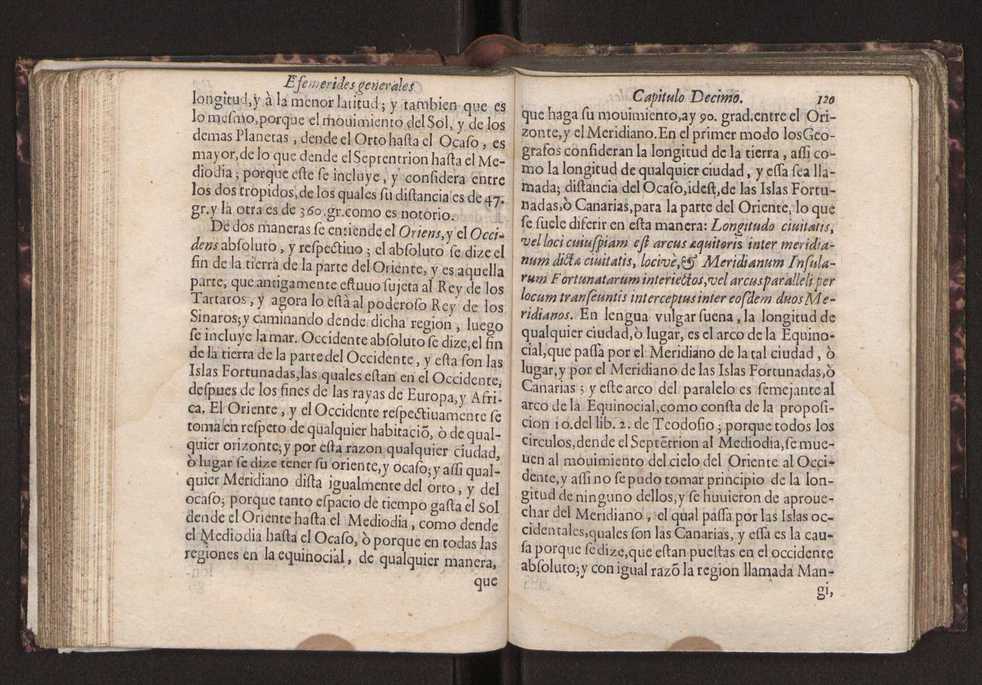 Efemerides generales
longitud, y à la menor latitud; y tambien que es
lo mesmo, porque el mouimiento del Sol, y de los
demas Planetas, dende el Orto hasta el Ocaso, es
mayor, de lo que dende el Septentrion hasta el Me-
diodia; porque este se incluye, y considera entre
los dos tropidos, de los quales su distancia es de 47.
gr. y la otra es de 360. gr. como es notorio.
De dos maneras se entiende el Oriens, y el Occi-
dens absoluto, y respectiuo; el absoluto se dize el
fin de la tierra de la parte del Oriente, y es aquella
parte, que antigamente estuuo sujeta al Rey de los
Tartaros, y agora lo està al poderoso Rey de los
Sinaros; y caminando dende dicha region, luego
se incluye la mar. Occidente absoluto se dize, el fin
de la tierra de la parte del Occidente, y esta son las
Islas Fortunadas, las quales estan en el Occidente,
despues de los fines de las rayas de Europa, y Afri-
ca. El Oriente, y el Occidente respectiuamente se
toma en respeto de qualquier habitaciō, ò de qual-
quier orizonte; y por esta razon qualquier ciudad,
ò lugar se dize tener su oriente, y ocaso; y assi qual-
quier Meridiano dista igualmente del orto, y del
ocaso; porque tanto espacio de tiempo gasta el Sol
dende el Oriente hasta el Mediodia, como dende
el Mediodia hasta el Ocaso, ò porque en todas las
regiones en la equinocial, de qualquier manera,
que
Capitulo Decimo. 120
que haga su mouimiento, ay 90. grad. entre el Ori-
zonte, y el Meridiano. En el primer modo los Geo-
grafos consideran la longitud de la tierra, assi co-
mo la longitud de qualquier ciudad, y essa sea lla-
mada; distancia del Ocaso, idest, de las Islas Fortu-
nadas, ò Canarias, para la parte del Oriente, lo que
se suele diferir en esta manera: Longitudo ciuitatis,
vel loci cuiuspiam est arcus æquitoris inter meridia-
num dicta ciuitatis, locivè, & Meridianum Insula-
rum Fortunatarum interiectos, vel arcus paralleli per
locum transeuntis interceptus inter eosdem duos Me-
ridianos. En lengua vulgar suena, la longitud de
qualquier ciudad, ò lugar, es el arco de la Equino-
cial, que passa por el Meridiano de la tal ciudad, ò
lugar, y por el Meridiano de las Islas Fortunadas, ò
Canarias; y este arco del paralelo es semejante al
arco de la Equinocial, como consta de la proposi-
cion 10. del lib. 2. de Teodosio; porque todos los
circulos, dende el Septētrion al Mediodia, se mue-
uen al mouimiento del cielo del Oriente al Occi-
dente, y assi no se pudo tomar principio de la lon-
gitud de ninguno dellos, y se huuieron de aproue-
char del Meridiano, el qual passa por las Islas oc-
cidentales, quales son las Canarias, y essa es la cau-
sa porque se dize, que estan puestas en el occidente
absoluto; y con igual razō la region llamada Man-
gi,